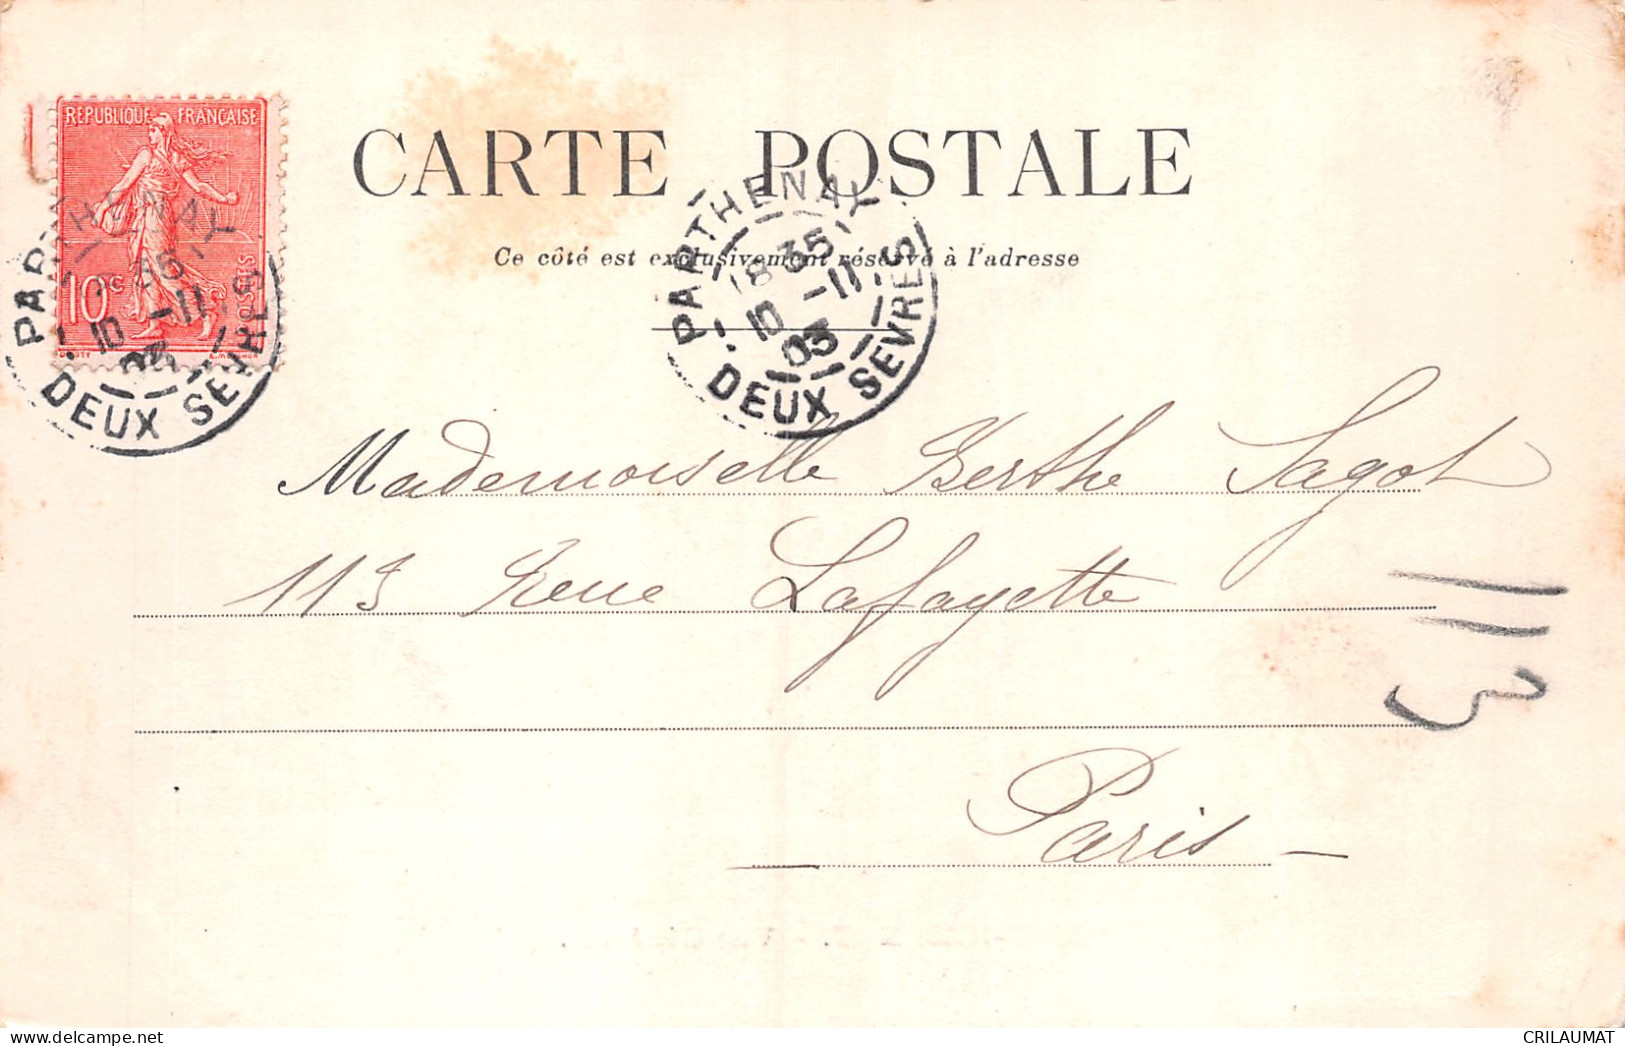 REPUBLIQUE FRANÇAISE
10c
POSTES
CARTE POSTALE
Ce côté est exclusivement réservé à l'adresse
PARTHENAY
18 35
10 -11
03
DEUX SEVRES
PARTHENAY
35
10 -11
03
DEUX SEVRES
Mademoiselle Berthe Sagot
113 Rue Lafayette
113
Paris
CRILAUMAT